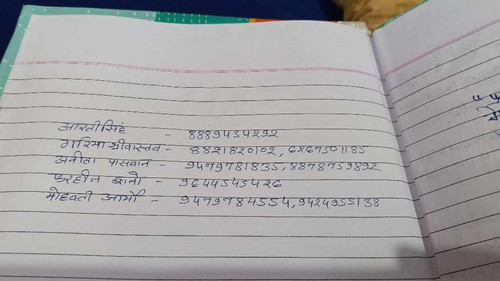 आरतीसिंह - 8889434292
गरिमा श्रीवास्तव - 8821820102, 6267501185
अनीता पासवान - 9479781835, 8878759892
फरहीन बानो - 9644545426
मोहवती आर्मो - 9479784554, 9424955138